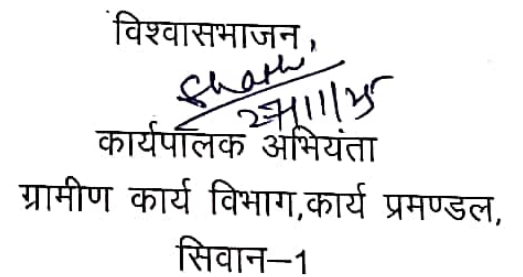 विश्वासभाजन,
27/11/25
कार्यपालक अभियंता
ग्रामीण कार्य विभाग,कार्य प्रमण्डल,
सिवान–1